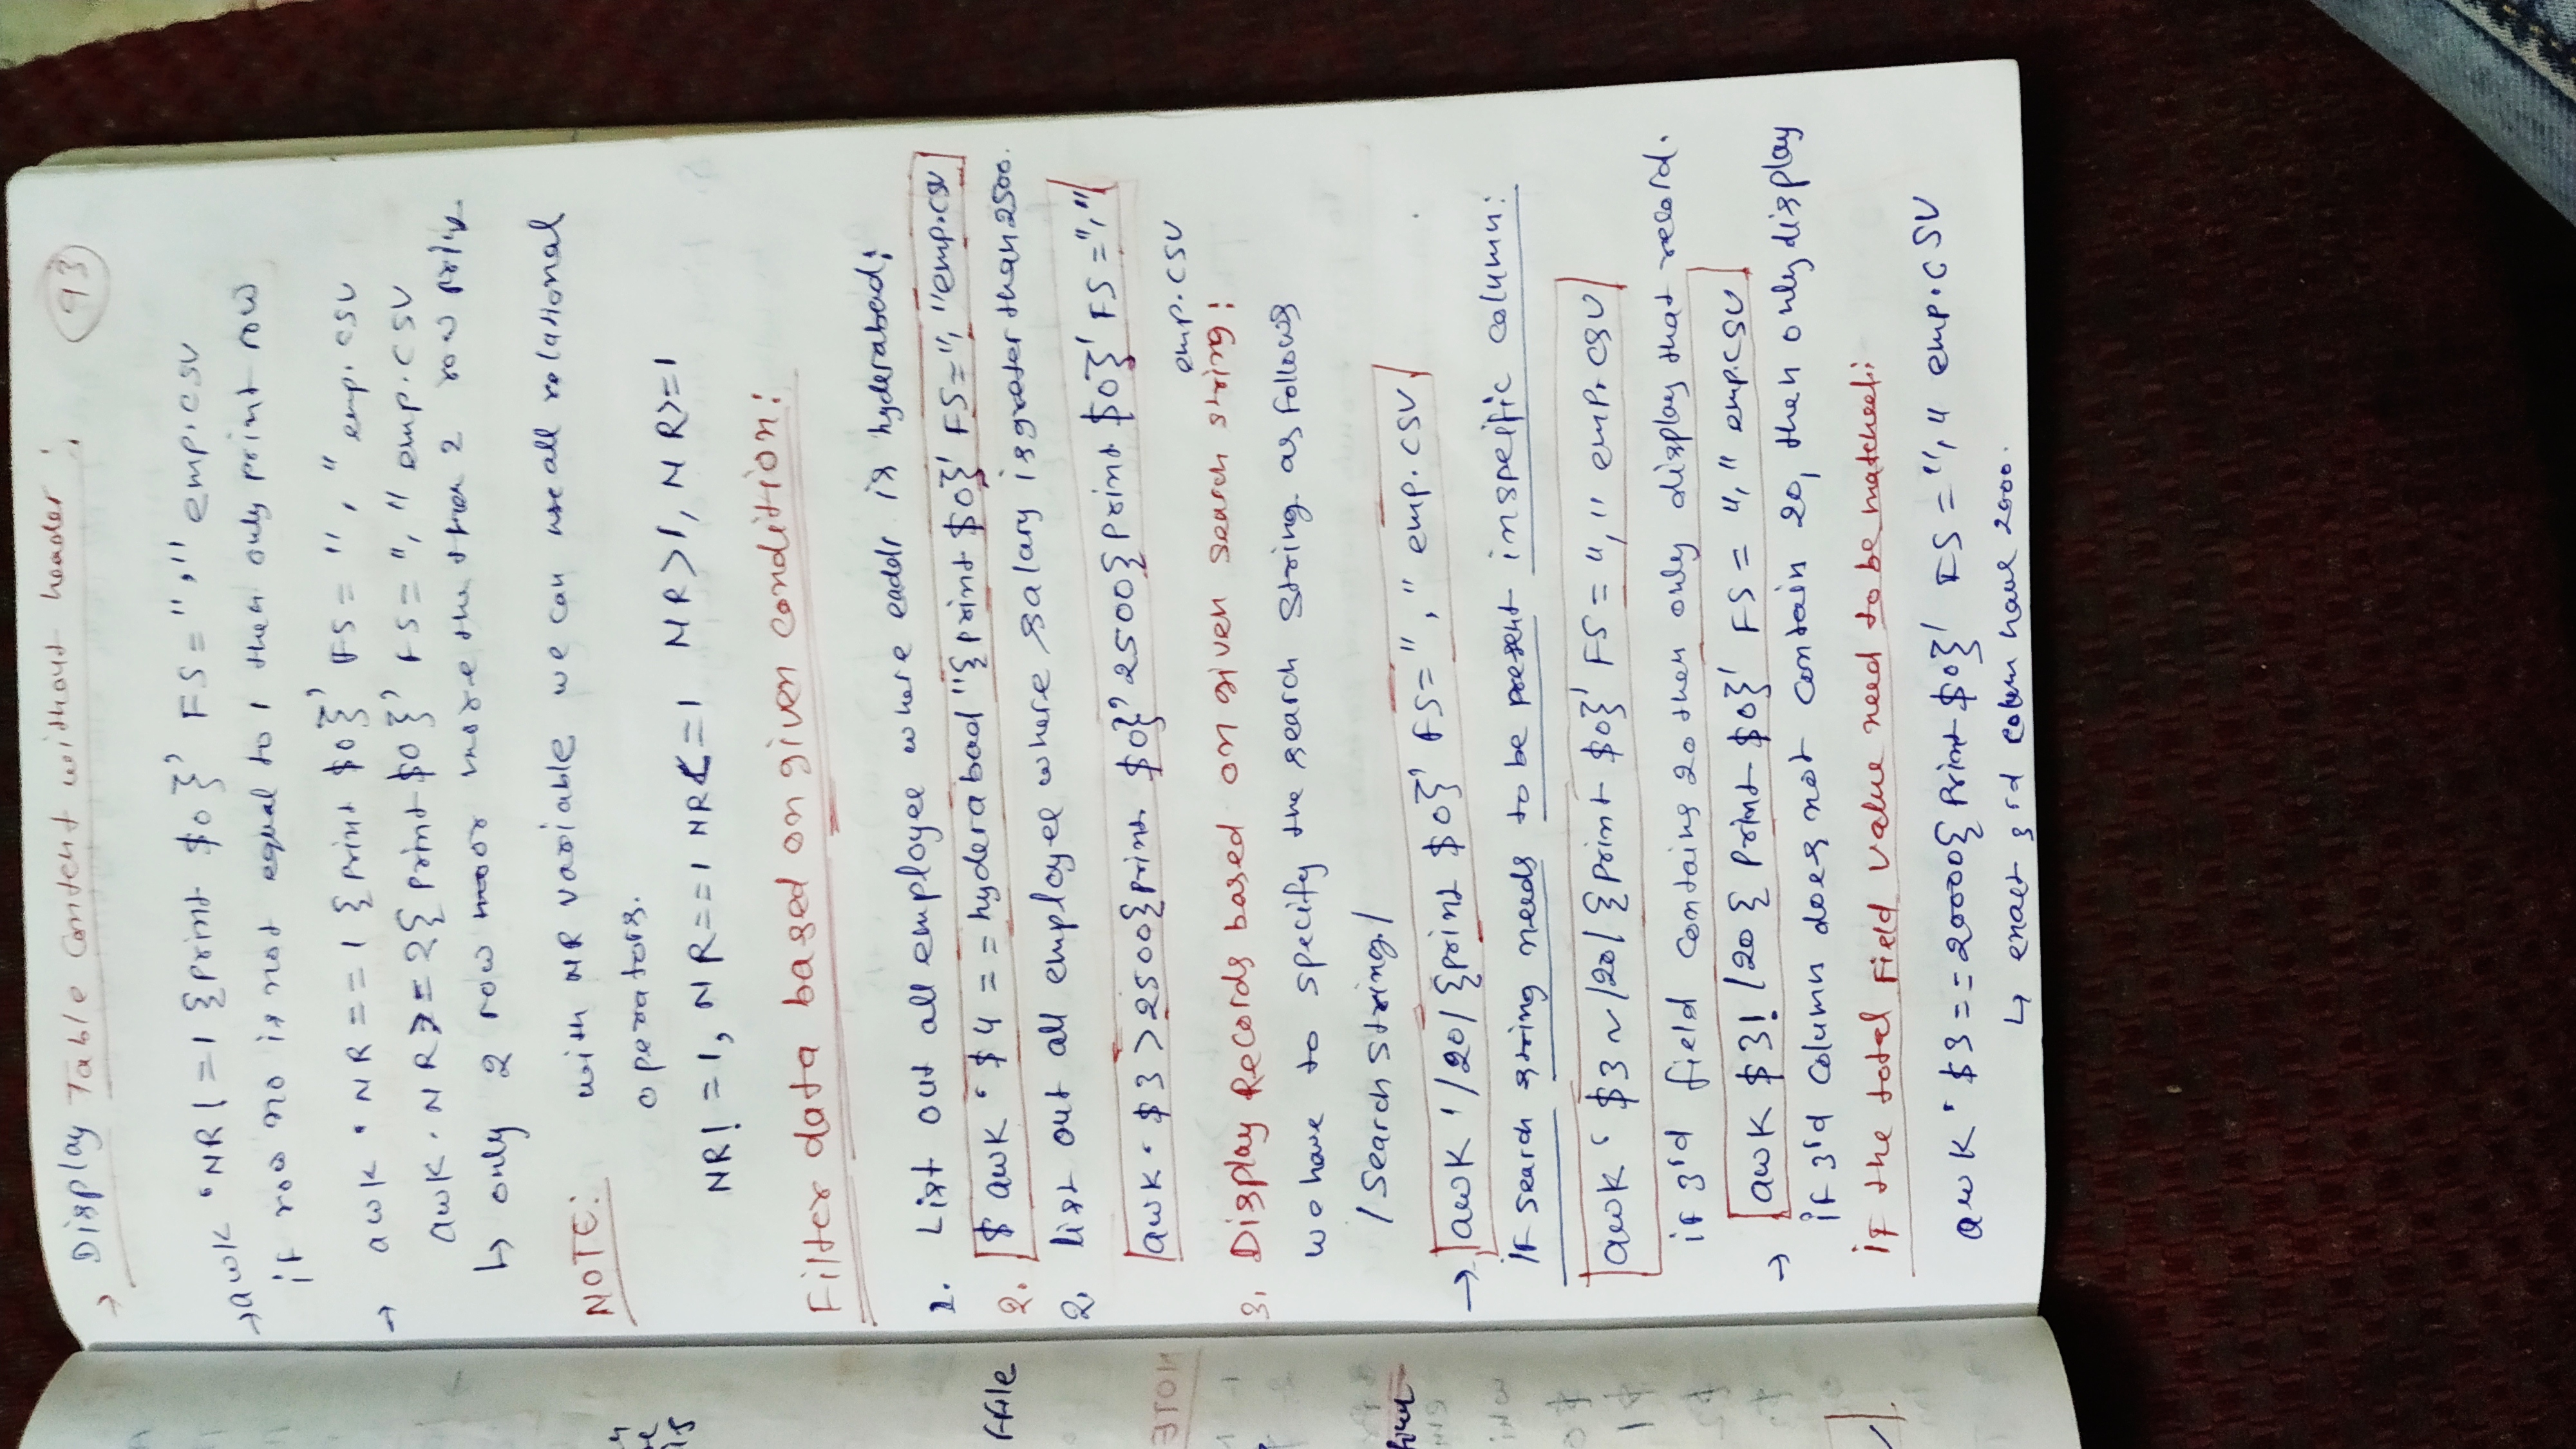 → Display Table Content without header :
93
→ awk 'NR!=1 {print $0}' FS="," emp.csv
if row no is not equal to 1 then only print row
→ awk 'NR==1 {print $0}' FS="," emp.csv
awk 'NR>=2{print $0}' FS="," emp.csv
↳ only 2 row more the than 2 row
NOTE: with NR variable we can use all relational
operators.
NR!=1, NR==1 NR<=1 NR>1, NR>=1
Filter data based on given condition:
1. List out all employee where eaddr is hyderabad;
2. $ awk '$4 == hyderabad "{print $0}' FS="," emp.csv
2. list out all employee where salary is greater than 2500.
awk '$3 >2500{print $0}' 2500{print $0}' FS=","
emp.csv
3. Display Records based on given search string:
we have to specify the search string as follows
/Search string/
→ awk '/20/ {print $0}' FS="," emp.csv
IF search string needs to be present in speific column:
awk '$3 ~ /20/ {print $0}' FS="," emp.csv
if 3rd field contains 20 then only display that record.
→ awk $3! /20 {print $0}' FS="," emp.csv
if 3rd column does not contain 20, then only display
if the total Field value need to be matched:
awk '$3==20000{print $0}' FS="," emp.csv
↳ exact 3rd colum have 2000.
ffile
NOTE
$0
$1